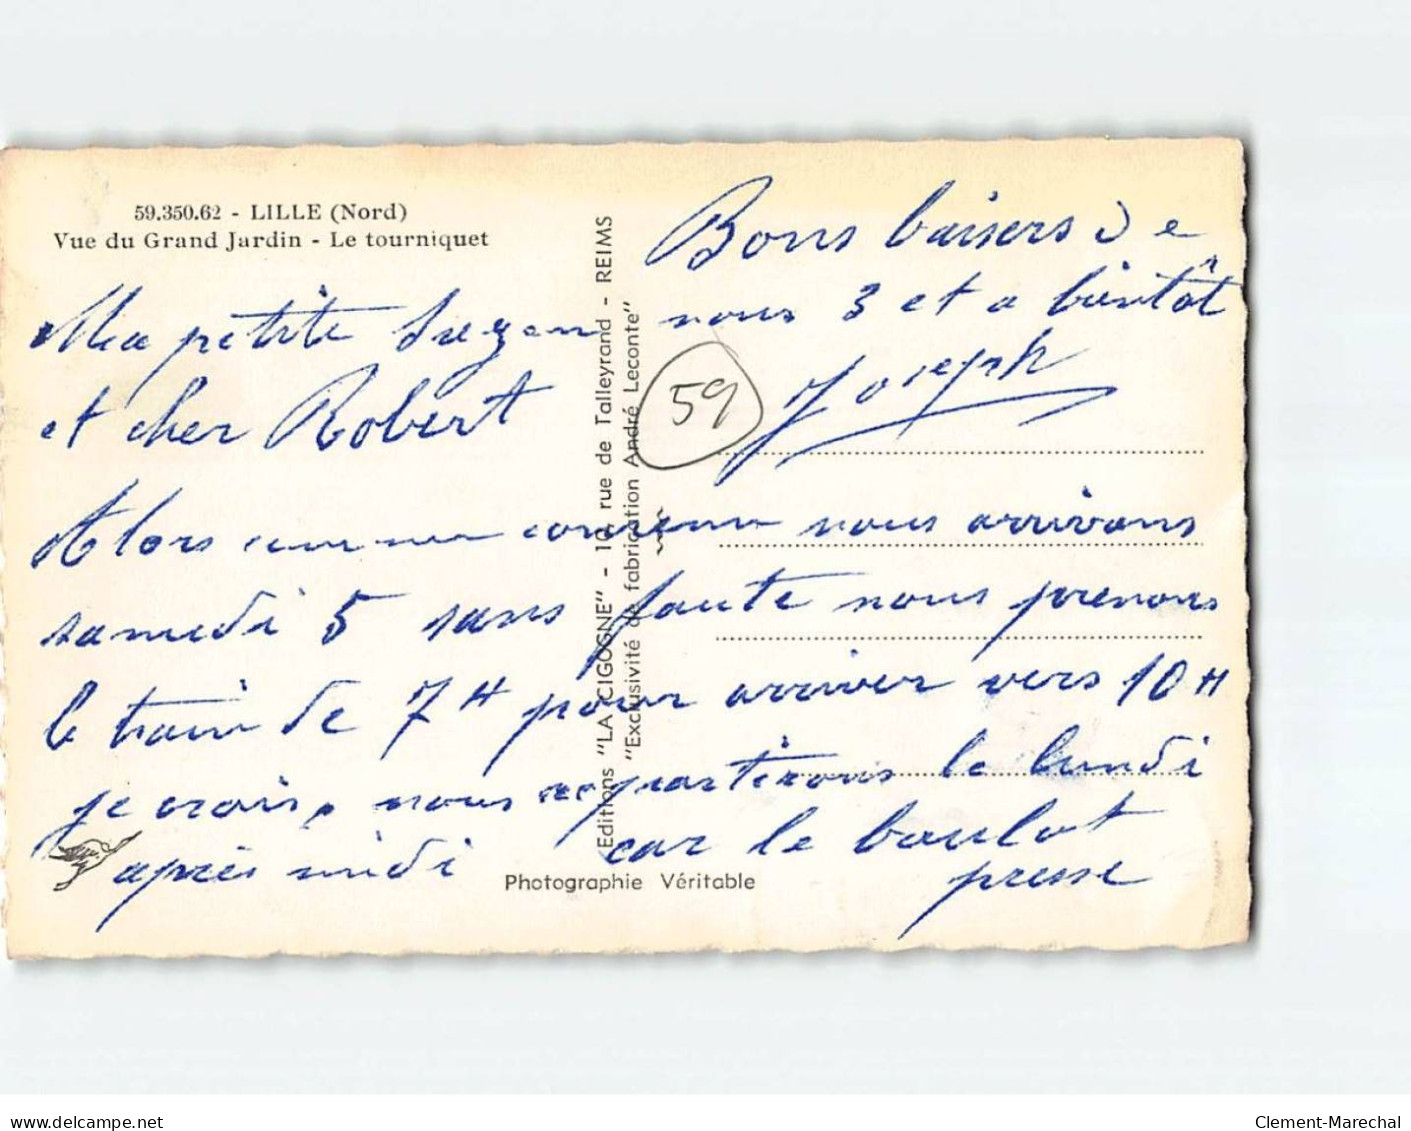 59.350.62 - LILLE (Nord)
Vue du Grand Jardin - Le tourniquet
Ma petite Suzan
et cher Robert
Alors comme convenu nous arrivons
samedi 5 sans faute nous prenons
le train de 7H pour arriver vers 10H
je crois, nous repartirons le lundi
après midi car le boulot
presse
Bons baisers de
nous 3 et a bientôt
Joseph
59
Editions "LA CIGOGNE" - 10, rue de Talleyrand - REIMS
"Exclusivité de fabrication André Leconte"
Photographie Véritable
delcampe.net
Clement-Marechal